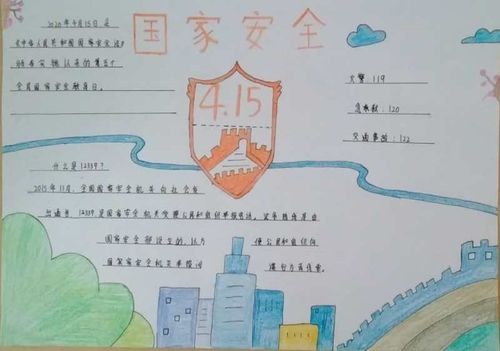 国家安全
2020年4月15日,是
《中华人民共和国国家安全法》
颁布实施以来的第五个
全民国家安全教育日。
4.15
火警:119
急救:120
交通事故:122
什么是12339?
2015年11月,全国国家安全机关向社会发
12339是国家安全机关受理公民和组织举报电话。
国家安全 设立的,以方 便公民和组织向
国家安全机关举报